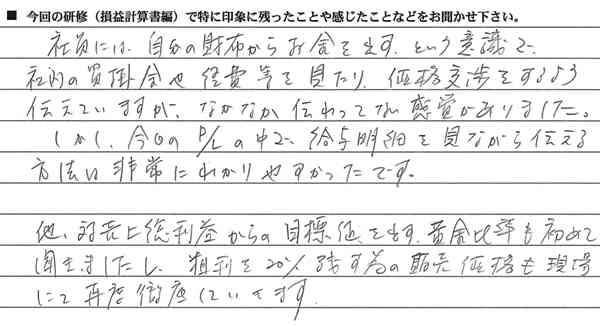 ■ 今回の研修（損益計算書編）で特に印象に残ったことや感じたことなどをお聞かせ下さい。
社員には、自分の財布からお金を出す、という意識で、
社内の買掛金や経費等を見たり、価格交渉をするよう
伝えていますが、なかなか伝わってない感覚がありました。
しかし、今回のP/Lの中で、給与明細を見ながら伝える
方法は非常にわかりやすかったです。
他、対売上総利益からの目標値を出す、黄金比率も初めて
聞きましたし、粗利を20%残す為の販売価格も現場
にて再度徹底していきます。